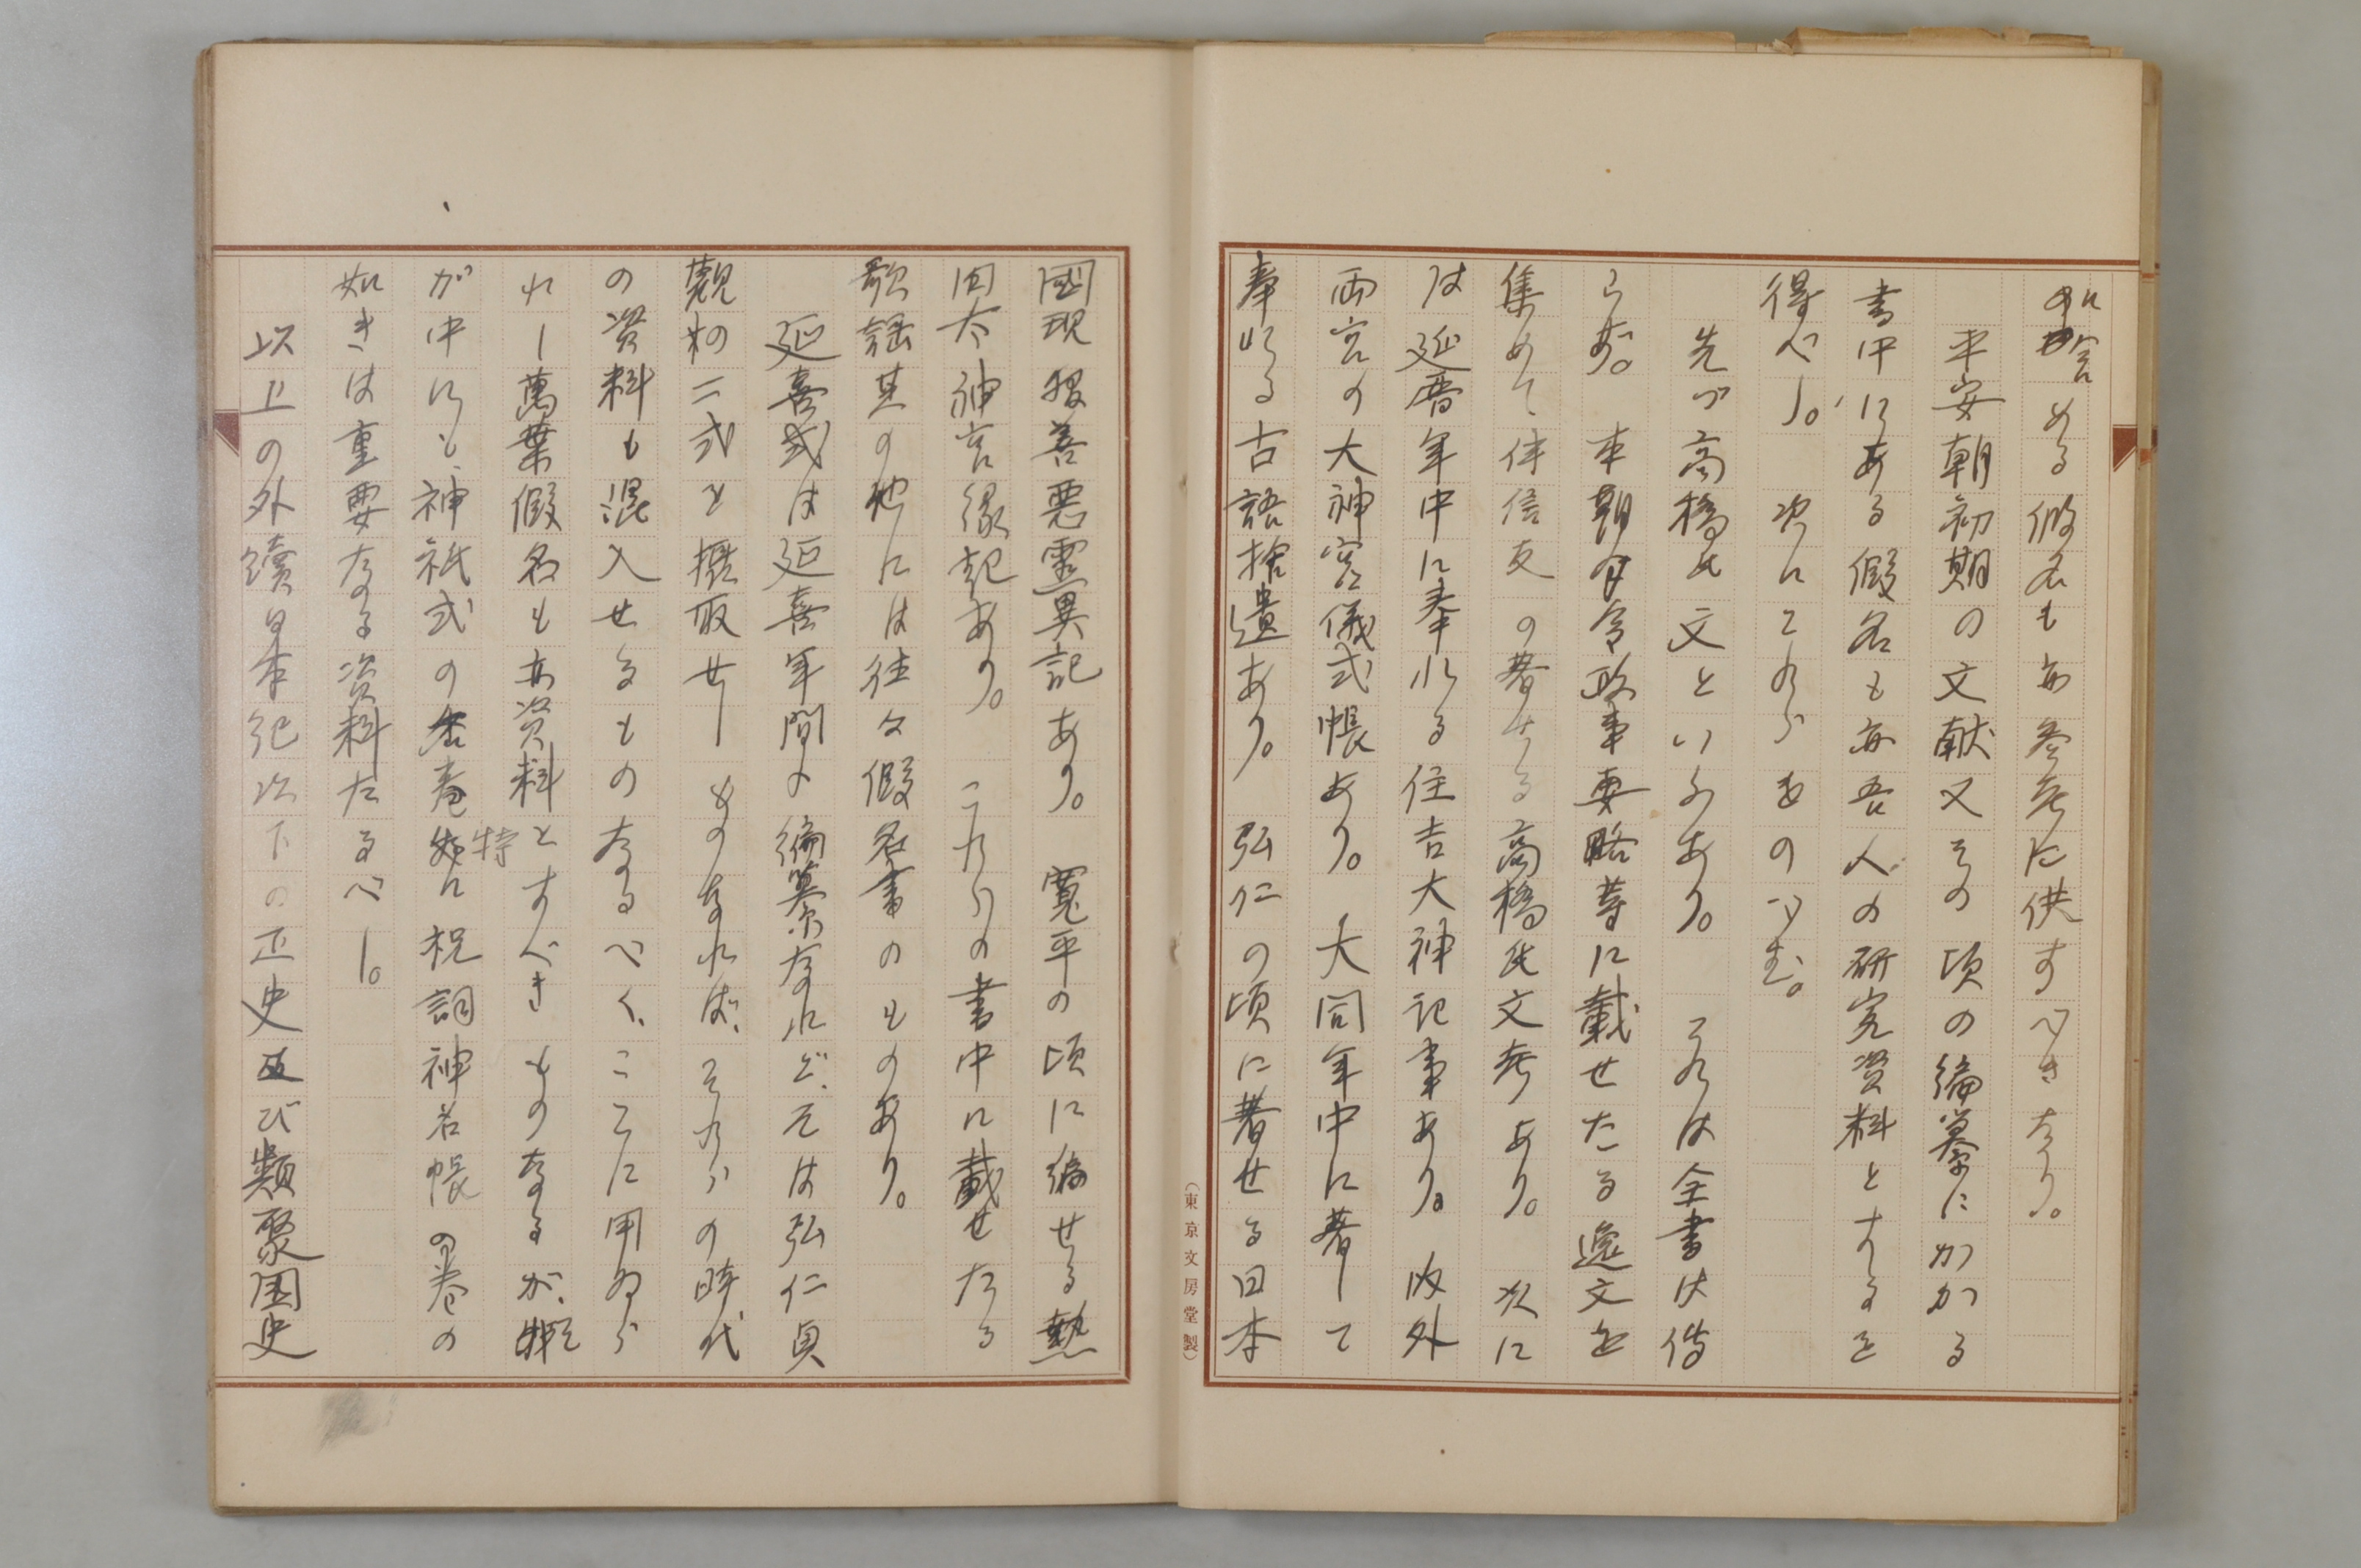 める假名も亦参考に供すべきなり。
平安朝初期の文献又その頃の編纂にかかる
書中にある假名も亦吾人の研究資料とするを
得べし。次にこれらをのべむ。
先づ高橋氏文といふあり。これは全書は傳
らず。本朝月令政事要略等に載せたる逸文を
集めて伴信友の著せる高橋氏文考あり。次に
は延暦年中に奉れる住吉大神記事あり。内外
両宮の大神宮儀式帳あり。大同年中に著して
奉れる古語拾遺あり。弘仁の頃に著せる日本
國現報善悪霊異記あり。寛平の頃に編せる熱
田太神宮縁起あり。これらの書中に載せたる
歌謡其の他には往々假名書のものあり。
延喜式は延喜年間の編纂なれど、そは弘仁貞
観の二式を摭取せしものなれば、それらの時代
の資料も混入せるものなるべく、ここに用ゐら
れし萬葉假名も亦資料とすべきものなるが、
が中にも、神祇式の巻特に祝詞神名帳の巻の
如きは重要なる資料たるべし。
以上の外續日本紀以下の正史及び類聚国史
(東京文房堂製)